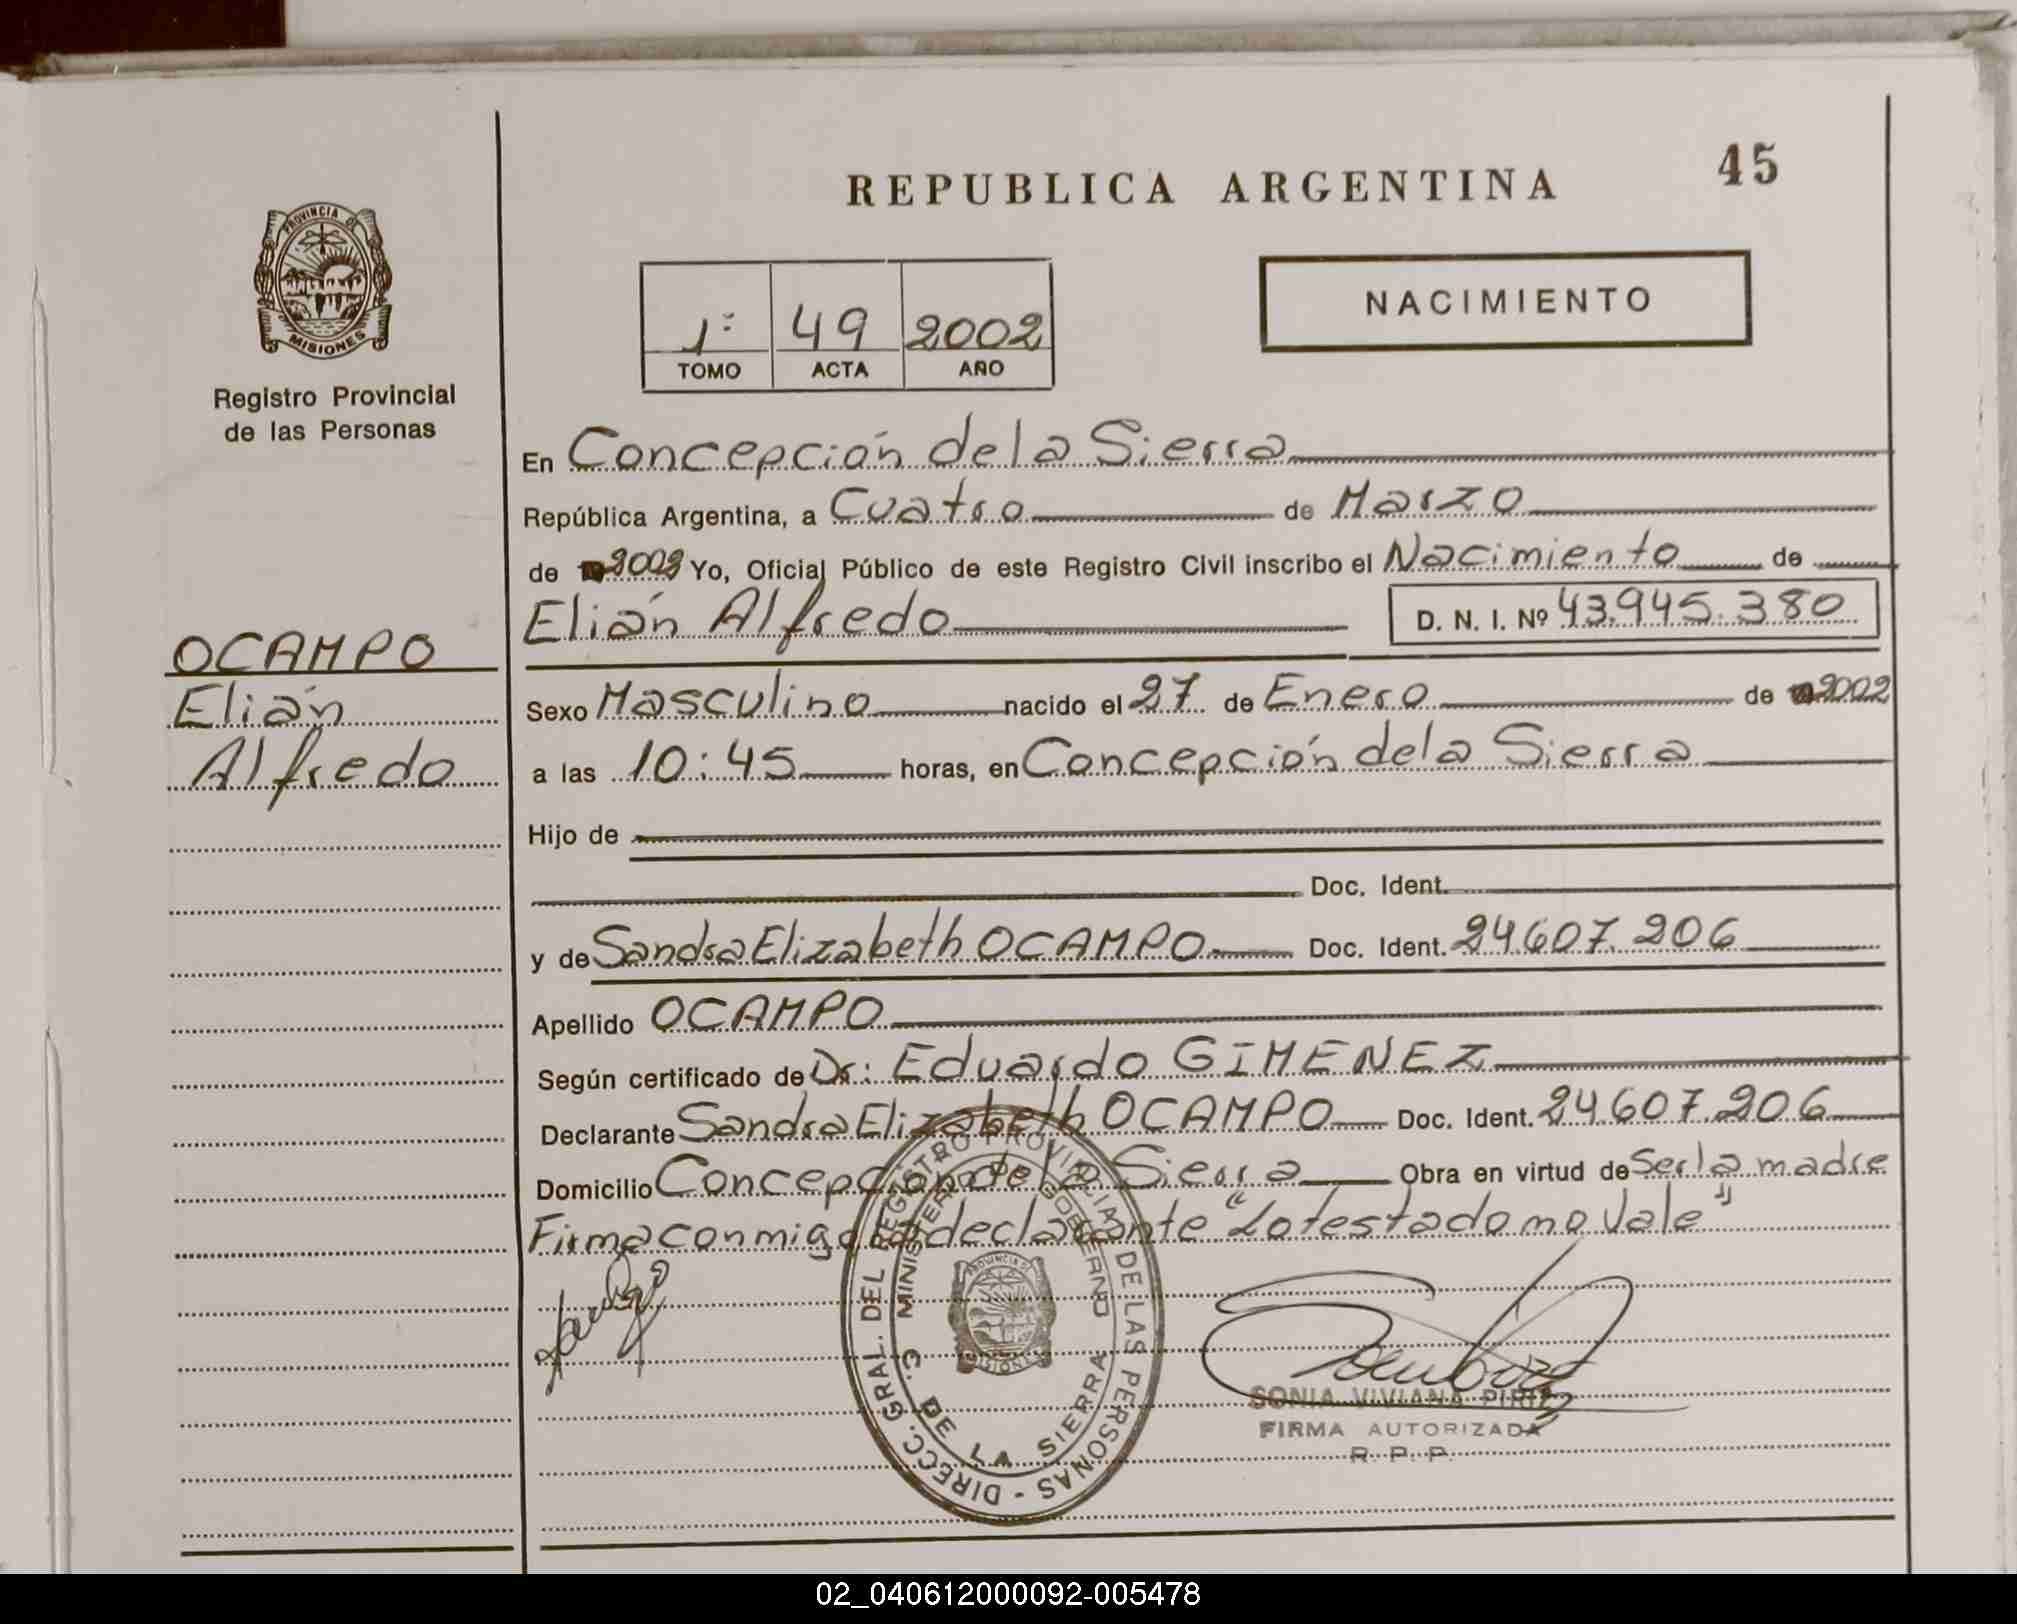 45
REPUBLICA ARGENTINA
PROVINCIA DE
MISIONES
Registro Provincial
de las Personas
NACIMIENTO
1º 49 2002
TOMO ACTA AÑO
En Concepción de la Sierra
República Argentina, a Cuatro de Marzo
de 2002 Yo, Oficial Público de este Registro Civil inscribo el Nacimiento de
Elián Alfredo D. N. I. Nº 43.945.380
OCAMPO
Elián
Alfredo
Sexo Masculino nacido el 27 de Enero de 2002
a las 10:45 horas, en Concepción de la Sierra
Hijo de
Doc. Ident.
y de Sandra Elizabeth OCAMPO Doc. Ident. 24.607.206
Apellido OCAMPO
Según certificado de Dr: Eduardo GIMENEZ
Declarante Sandra Elizabeth OCAMPO Doc. Ident. 24.607.206
Domicilio Concepción de la Sierra Obra en virtud de Ser la madre
Firma conmigo la declarante "Lo testado no Vale"
DIRECC. GRAL. DEL REGISTRO PROVINCIAL DE LAS PERSONAS -
MINISTERIO DE GOBIERNO
C. DE LA SIERRA
PROVINCIA DE
MISIONES
SONIA VIVIANA
FIRMA AUTORIZADA
R. P. P.
02_040612000092-005478